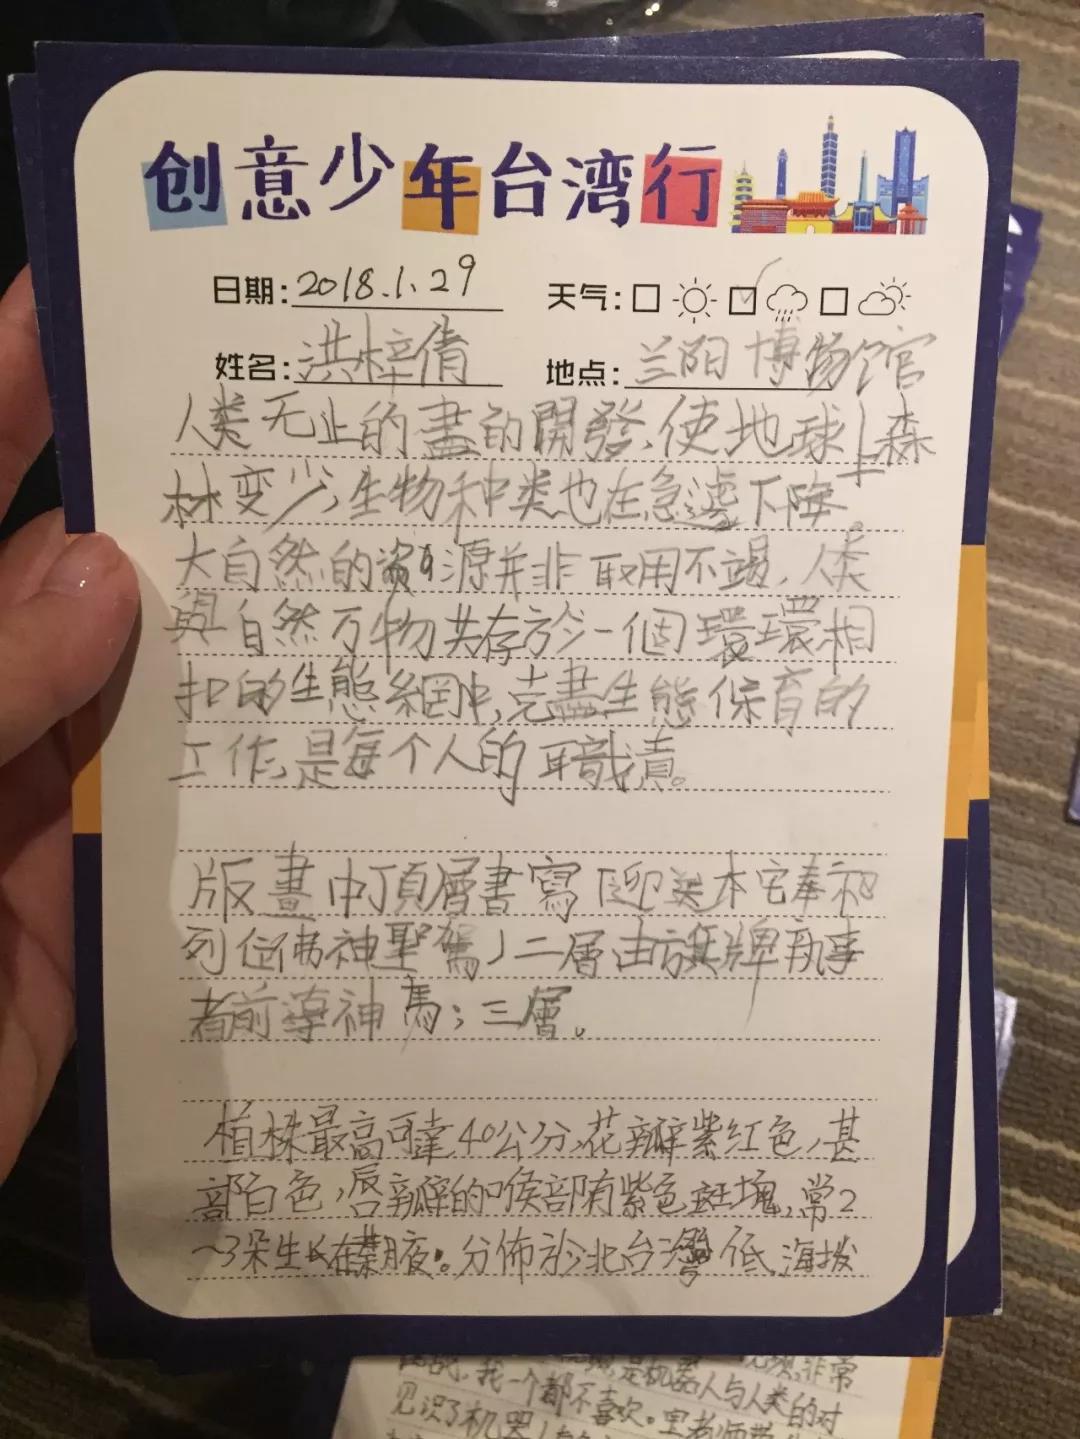 创意少年台湾行
日期:2018.1.29 天气:
姓名:洪梓倩 地点:兰阳博物馆
人类无止的盡的開發,使地球上森
林变少,生物种类也在急遽下降。
大自然的資源并非取用不竭,人类
與自然万物共存於一個環環相
扣的生態網中,克盡生態保育的
工作,是每个人的職責。
版畫中頂層書寫「迎送本宅奉祀
列位佛神聖駕」二層由旗牌執事
者前導神馬;三層。
植株最高可達40公分,花瓣紫红色,甚
部白色,唇瓣的喉部有紫色斑塊,常2
~3朵生长在葉腋。分佈於北台灣低海拔
我一个都不喜欢。 是机器人与人类的对
见识了机器